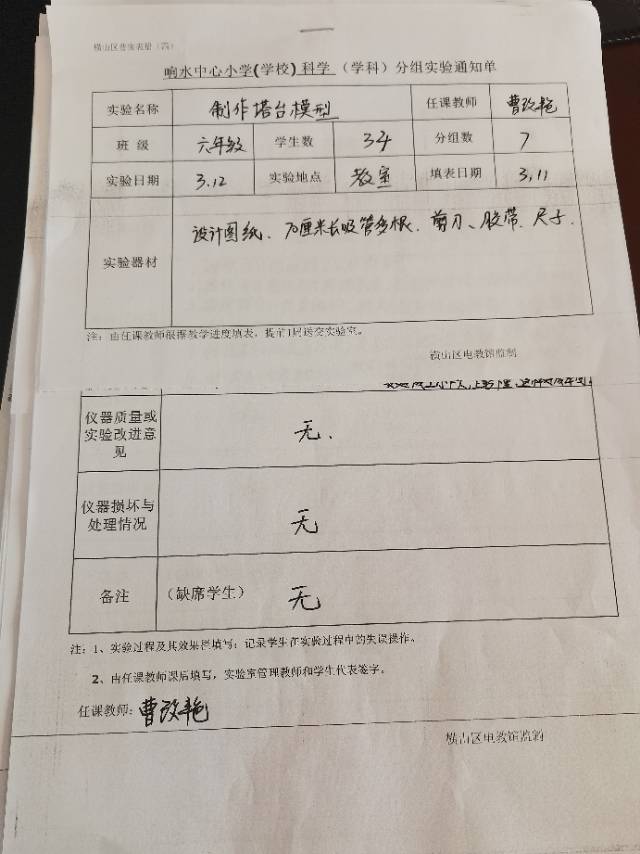 横山区普实表册（六）
响水中心小学(学校) 科学 （学科）分组实验通知单
实验名称 制作塔台模型 任课教师 曹改艳
班 级 六年级 学生数 34 分组数 7
实验日期 3.12 实验地点 教室 填表日期 3.11
实验器材 设计图纸、70厘米长吸管多根、剪刀、胶带、尺子.
注：由任课教师根据教学进度填表，提前1周送交实验室。
横山区电教馆监制
仪器质量或
实验改进意 无.
见
仪器损坏与
处理情况 无
备注 （缺席学生） 无
注：1、实验过程及其效果栏填写：记录学生在实验过程中的失误操作。
2、由任课教师课后填写，实验室管理教师和学生代表签字。
任课教师：曹改艳
横山区电教馆监制